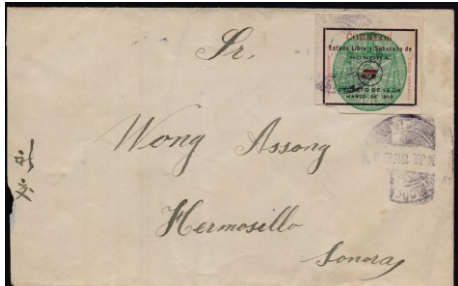 CORREOS
Estado Libre y Soberano de
SONORA
DECRETO DE 12 DE
MARZO DE 1913
Sr.
Wong Assong
Hermosillo
Sonora